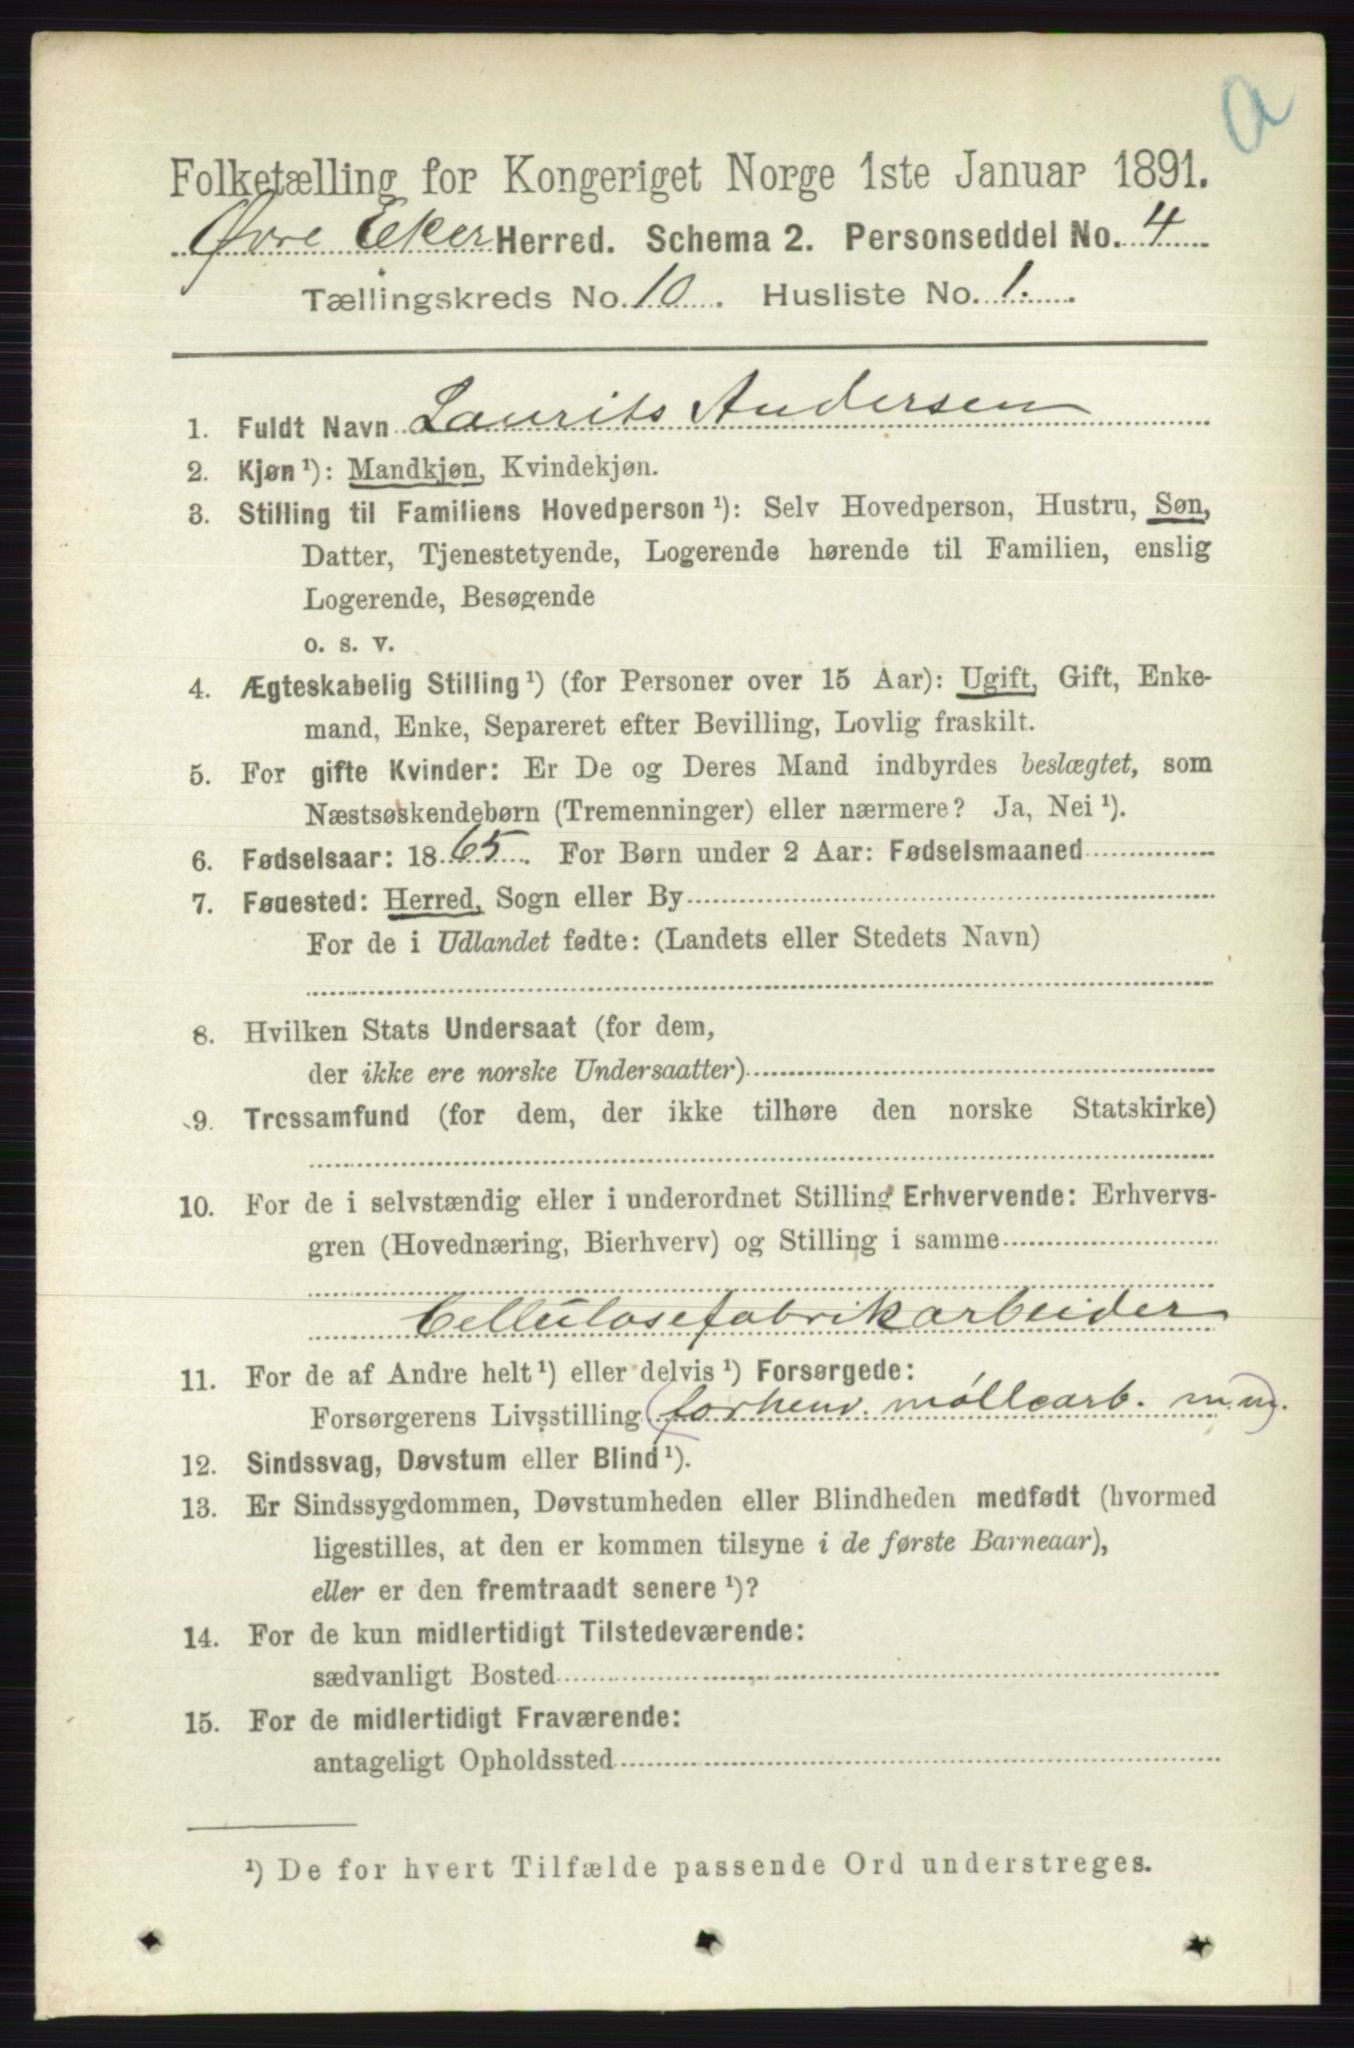 a
Folketælling for Kongeriget Norge 1ste Januar 1891.
Øvre Eker Herred. Schema 2. Personseddel No. 4
Tællingskreds No. 10. Husliste No. 1.
1. Fuldt Navn Laurits Andersen
2. Kjøn¹): Mandkjøn, Kvindekjøn.
3. Stilling til Familiens Hovedperson¹): Selv Hovedperson, Hustru, Søn,
Datter, Tjenestetyende, Logerende hørende til Familien, enslig
Logerende, Besøgende
o. s. v.
4. Ægteskabelig Stilling¹) (for Personer over 15 Aar): Ugift, Gift, Enke-
mand, Enke, Separeret efter Bevilling, Lovlig fraskilt.
5. For gifte Kvinder: Er De og Deres Mand indbyrdes beslægtet, som
Næstsøskendebørn (Tremenninger) eller nærmere? Ja, Nei¹).
6. Fødselsaar: 1865. For Børn under 2 Aar: Fødselsmaaned
7. Føuested: Herred, Sogn eller By
For de i Udlandet fødte: (Landets eller Stedets Navn)
8. Hvilken Stats Undersaat (for dem,
der ikke ere norske Undersaatter)
9. Trossamfund (for dem, der ikke tilhøre den norske Statskirke)
10. For de i selvstændig eller i underordnet Stilling Erhvervende: Erhvervs-
gren (Hovednæring, Bierhverv) og Stilling i samme
Cellulosefabrikarbeider
11. For de af Andre helt¹) eller delvis¹) Forsørgede:
Forsørgerens Livsstilling (forhenv. møllearb. m.m).
12. Sindssvag, Døvstum eller Blind¹).
13. Er Sindssygdommen, Døvstumheden eller Blindheden medfødt (hvormed
ligestilles, at den er kommen tilsyne i de første Barneaar),
eller er den fremtraadt senere¹)?
14. For de kun midlertidigt Tilstedeværende:
sædvanligt Bosted
15. For de midlertidigt Fraværende:
antageligt Opholdssted
¹) De for hvert Tilfælde passende Ord understreges.